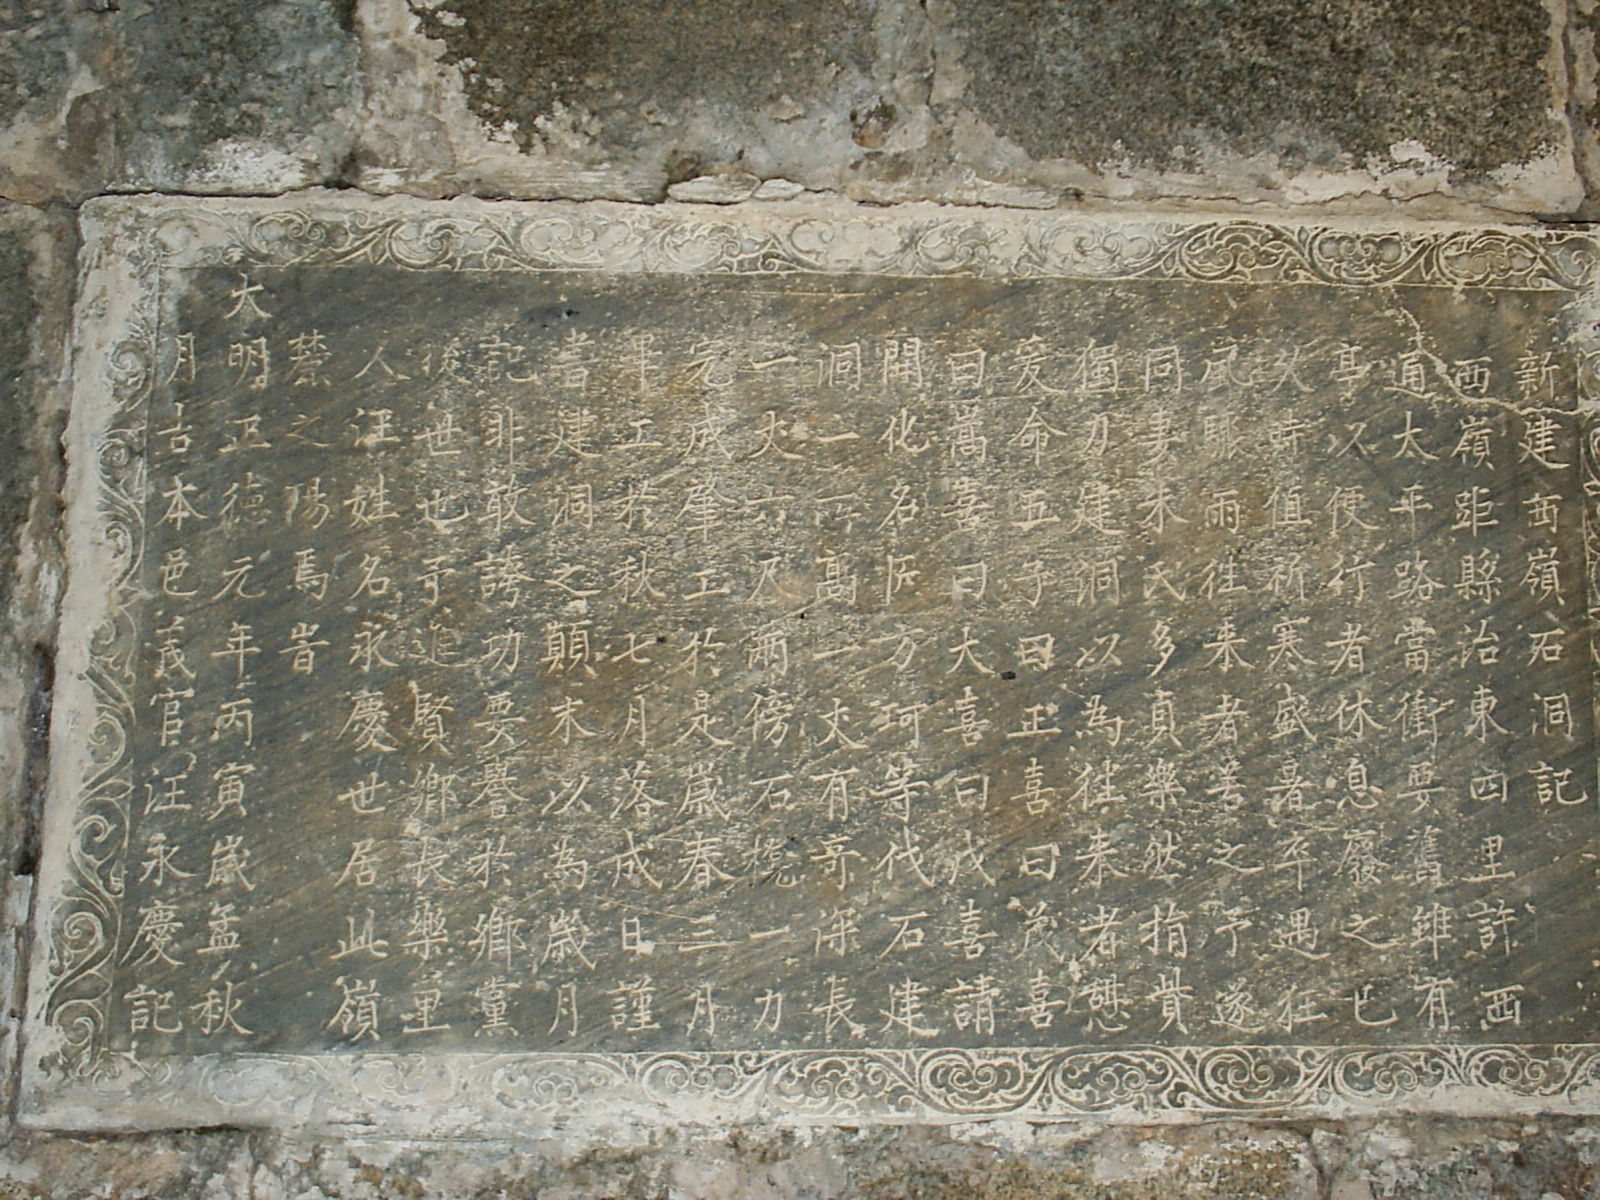 新建西嶺石洞記
西嶺距縣治東四里許西
通太平路當衝要舊雖有
亭以便行者休息廢之已
久時值祈寒盛暑卒遇狂
風驟雨往来者苦之予遂
同妻朱氏多貞樂然捐貲
獨力建洞以為往来者憩
爰命五子曰正喜曰茂喜
曰萬喜曰大喜曰戊喜請
開化名匠方珂等伐石建
洞一所高一丈有奇深長
一丈六尺兩傍石欖一力
完成肇工於是歲春三月
畢工於秋七月落成日謹
書建洞之顛末以為歲月
記非敢誇功要譽於鄉黨
後世也予進賢鄉長樂里
人汪姓名永慶世居此嶺
之陽焉旹
大明正德元年丙寅歲孟秋
月吉本邑義官汪永慶記